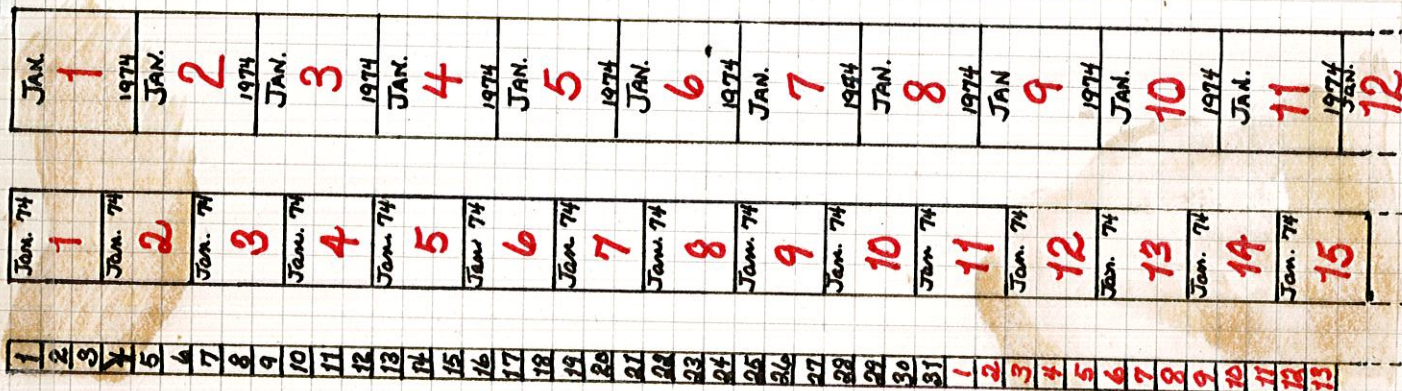 JAN. 1 1974 JAN. 2 1974 JAN. 3 1974 JAN. 4 1974 JAN. 5 1974 JAN. 6 1974 JAN. 7 1974 JAN. 8 1974 JAN 9 1974 JAN. 10 1974 JAN. 11 1974 Jan. 12
Jan. 74 1 Jan. 74 2 Jan. 74 3 Jan. 74 4 Jan. 74 5 Jan 74 6 Jan. 74 7 Jan. 74 8 Jan. 74 9 Jan. 74 10 Jan 74 11 Jan. 74 12 Jan. 74 13 Jan. 74 14 Jan. 74 15
1 2 3 4 5 6 7 8 9 10 11 12 13 14 15 16 17 18 19 20 21 22 23 24 25 26 27 28 29 30 31 1 2 3 4 5 6 7 8 9 10 11 12 13